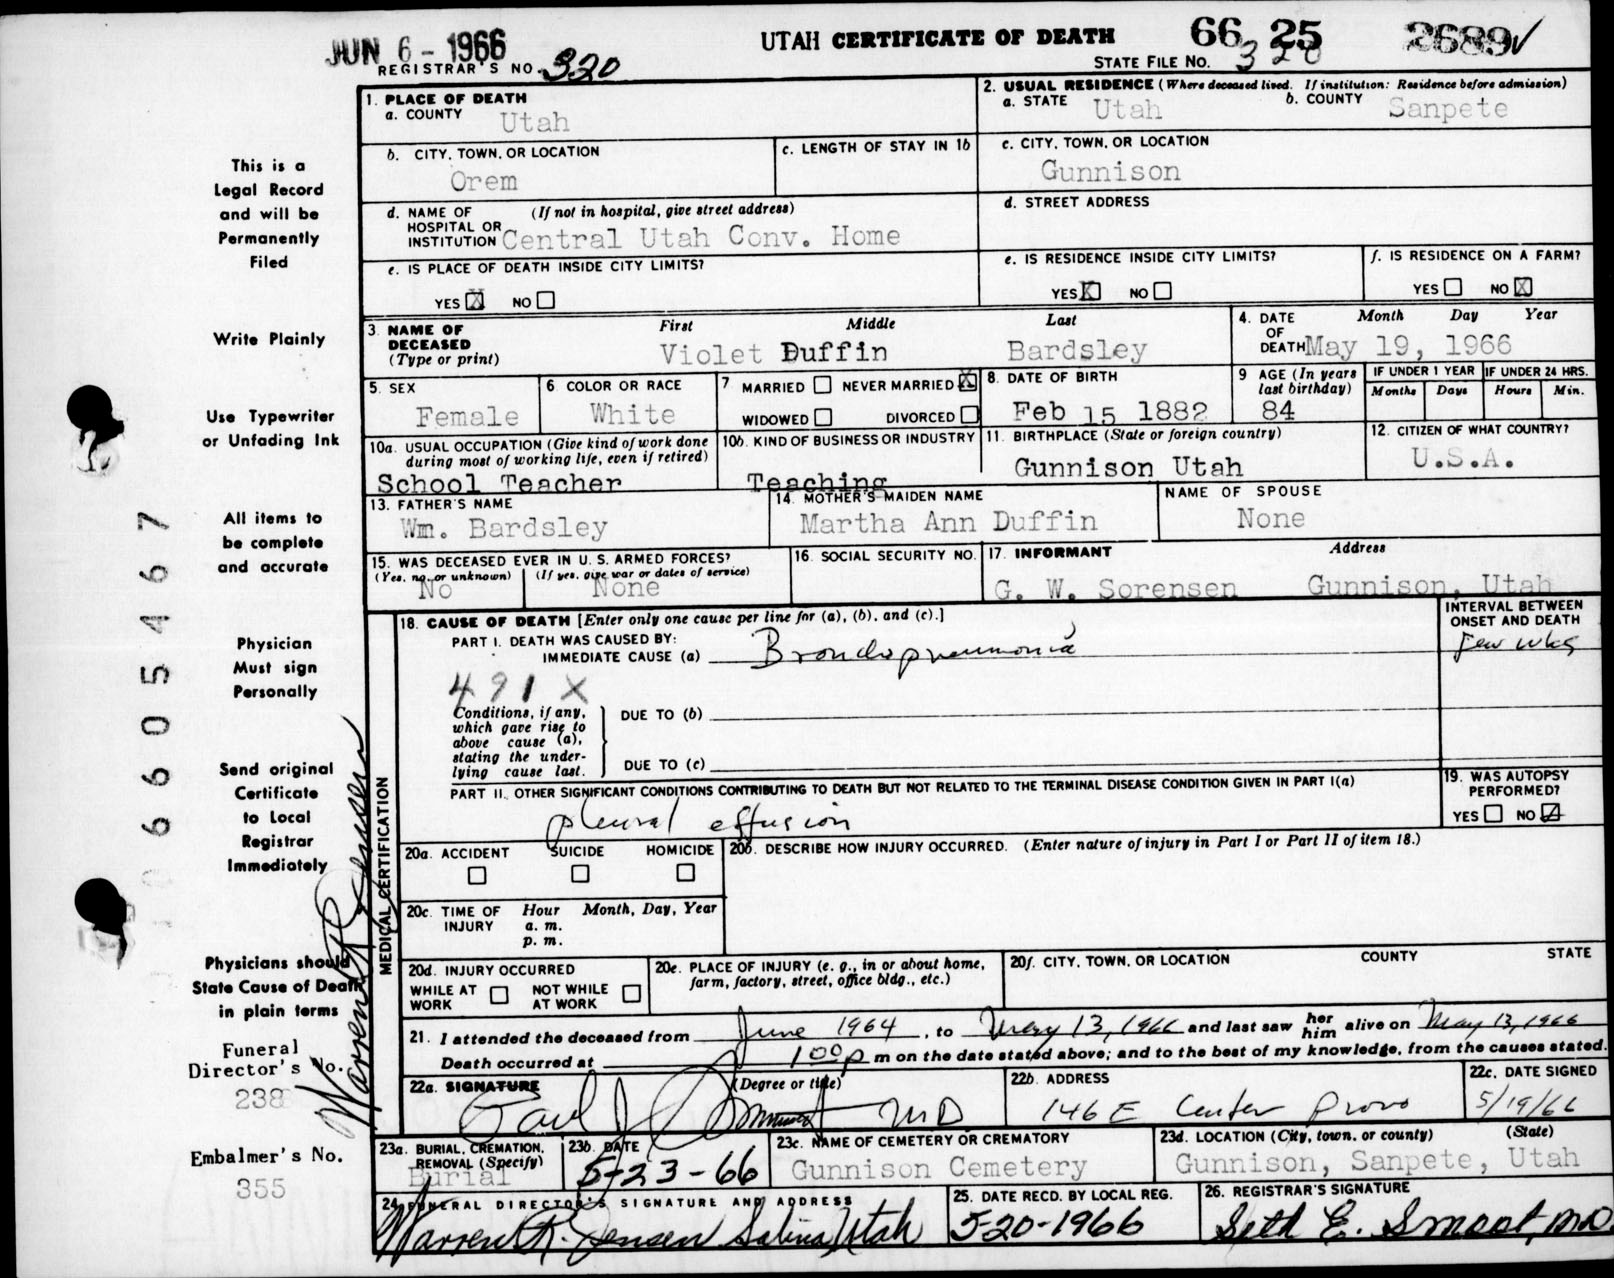 JUN 6 - 1966
UTAH CERTIFICATE OF DEATH
66 25 2689
REGISTRAR'S NO. 320
STATE FILE NO. 320
This is a
Legal Record
and will be
Permanently
Filed
Write Plainly
Use Typewriter
or Unfading Ink
All items to
be complete
and accurate
Physician
Must sign
Personally
Send original
Certificate
to Local
Registrar
Immediately
Physicians should
State Cause of Death
in plain terms
Funeral
Director's No.
238
Embalmer's No.
355
6605467
Warren R Jensen
1. PLACE OF DEATH
a. COUNTY Utah
2. USUAL RESIDENCE (Where deceased lived. If institution: Residence before admission)
a. STATE Utah b. COUNTY Sanpete
b. CITY, TOWN, OR LOCATION
Orem
c. LENGTH OF STAY IN 1b
c. CITY, TOWN, OR LOCATION
Gunnison
d. NAME OF (If not in hospital, give street address)
HOSPITAL OR
INSTITUTION Central Utah Conv. Home
d. STREET ADDRESS
e. IS PLACE OF DEATH INSIDE CITY LIMITS?
YES X NO
e. IS RESIDENCE INSIDE CITY LIMITS?
YES X NO
f. IS RESIDENCE ON A FARM?
YES NO X
3. NAME OF DECEASED (Type or print)
First Middle Last
Violet Duffin Bardsley
4. DATE OF DEATH
Month Day Year
May 19, 1966
5. SEX
Female
6 COLOR OR RACE
White
7 MARRIED NEVER MARRIED X
WIDOWED DIVORCED
8. DATE OF BIRTH
Feb 15 1882
9 AGE (In years last birthday)
84
IF UNDER 1 YEAR
Months Days
IF UNDER 24 HRS.
Hours Min.
10a. USUAL OCCUPATION (Give kind of work done
during most of working life, even if retired)
School Teacher
10b. KIND OF BUSINESS OR INDUSTRY
Teaching
11. BIRTHPLACE (State or foreign country)
Gunnison Utah
12. CITIZEN OF WHAT COUNTRY?
U.S.A.
13. FATHER'S NAME
Wm. Bardsley
14. MOTHER'S MAIDEN NAME
Martha Ann Duffin
NAME OF SPOUSE
None
15. WAS DECEASED EVER IN U. S. ARMED FORCES?
(Yes, no, or unknown) (If yes, give war or dates of service)
No None
16. SOCIAL SECURITY NO.
17. INFORMANT Address
G. W. Sorensen Gunnison, Utah
MEDICAL CERTIFICATION
18. CAUSE OF DEATH [Enter only one cause per line for (a), (b), and (c).]
INTERVAL BETWEEN
ONSET AND DEATH
PART I. DEATH WAS CAUSED BY:
IMMEDIATE CAUSE (a) Bronchopneumonia
Few wks
491 X
Conditions, if any,
which gave rise to
above cause (a),
stating the under-
lying cause last.
DUE TO (b)
DUE TO (c)
PART II. OTHER SIGNIFICANT CONDITIONS CONTRIBUTING TO DEATH BUT NOT RELATED TO THE TERMINAL DISEASE CONDITION GIVEN IN PART I(a)
pleural effusion
19. WAS AUTOPSY
PERFORMED?
YES NO
20a. ACCIDENT SUICIDE HOMICIDE
20b. DESCRIBE HOW INJURY OCCURRED. (Enter nature of injury in Part I or Part II of item 18.)
20c. TIME OF INJURY
Hour Month, Day, Year
a. m.
p. m.
20d. INJURY OCCURRED
WHILE AT WORK NOT WHILE AT WORK
20e. PLACE OF INJURY (e. g., in or about home,
farm, factory, street, office bldg., etc.)
20f. CITY, TOWN, OR LOCATION COUNTY STATE
21. I attended the deceased from June 1964, to May 13, 1966 and last saw her him alive on May 13, 1966
Death occurred at 1:00 p m on the date stated above; and to the best of my knowledge, from the causes stated.
22a. SIGNATURE (Degree or title)
Paul J MD
22b. ADDRESS
146 E Center Provo
22c. DATE SIGNED
5/19/66
23a. BURIAL, CREMATION,
REMOVAL (Specify)
Burial
23b. DATE
5-23-66
23c. NAME OF CEMETERY OR CREMATORY
Gunnison Cemetery
23d. LOCATION (City, town, or county) (State)
Gunnison, Sanpete, Utah
24. FUNERAL DIRECTOR'S SIGNATURE AND ADDRESS
Warren R. Jensen Salina Utah
25. DATE RECD. BY LOCAL REG.
5-20-1966
26. REGISTRAR'S SIGNATURE
Seth E. Smoot, MD